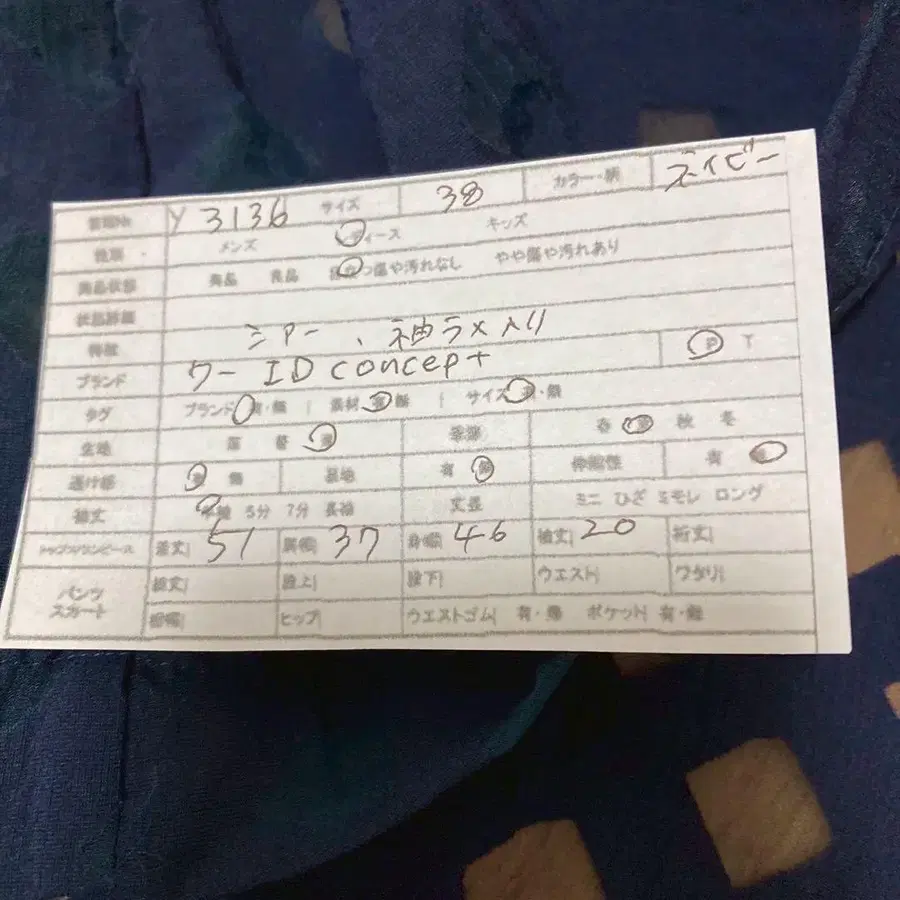 管理No Y3136 サイズ 38 カラー・柄 ネイビー
性別 メンズ ディース キッズ
商品状態 美品 良品 目立つ傷や汚れなし やや傷や汚れあり
状態詳細
特徴 シアー、袖ラメ入り
ブランド ワー ID concept P T
タグ ブランド 有・無 | 素材 有 無 | サイズ 有・無
生地 厚 普 薄 季節 春 夏 秋 冬
透け感 有 無 裏地 有 無 伸縮性 有
袖丈 半袖 5分 7分 長袖 丈長 ミニ ひざ ミモレ ロング
トップス/ワンピース 着丈 51 肩幅 37 身幅 46 袖丈 20 裄丈
パンツ スカート 総丈 股上 股下 ウエスト ワタリ
裾幅 ヒップ ウエストゴム 有・無 ポケット 有・無